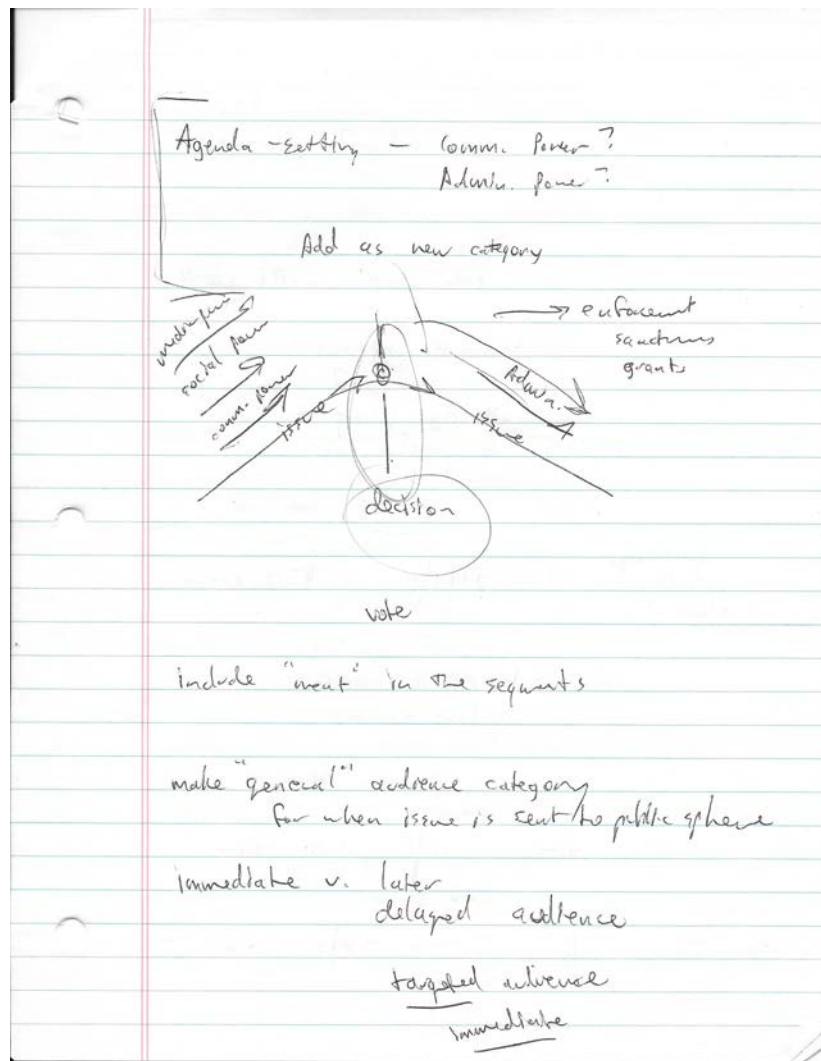 Agenda-setting — Comm. Power?
Admin. Power?
Add as new category
media power
social power
comm. power
issue
issue
Admin.
→ enforcement
sanctions
grants
decision
vote
include "meat" in the segments
make "general" audience category
for when issue is sent to public sphere
immediate v. later
delayed audience
targeted audience
immediate